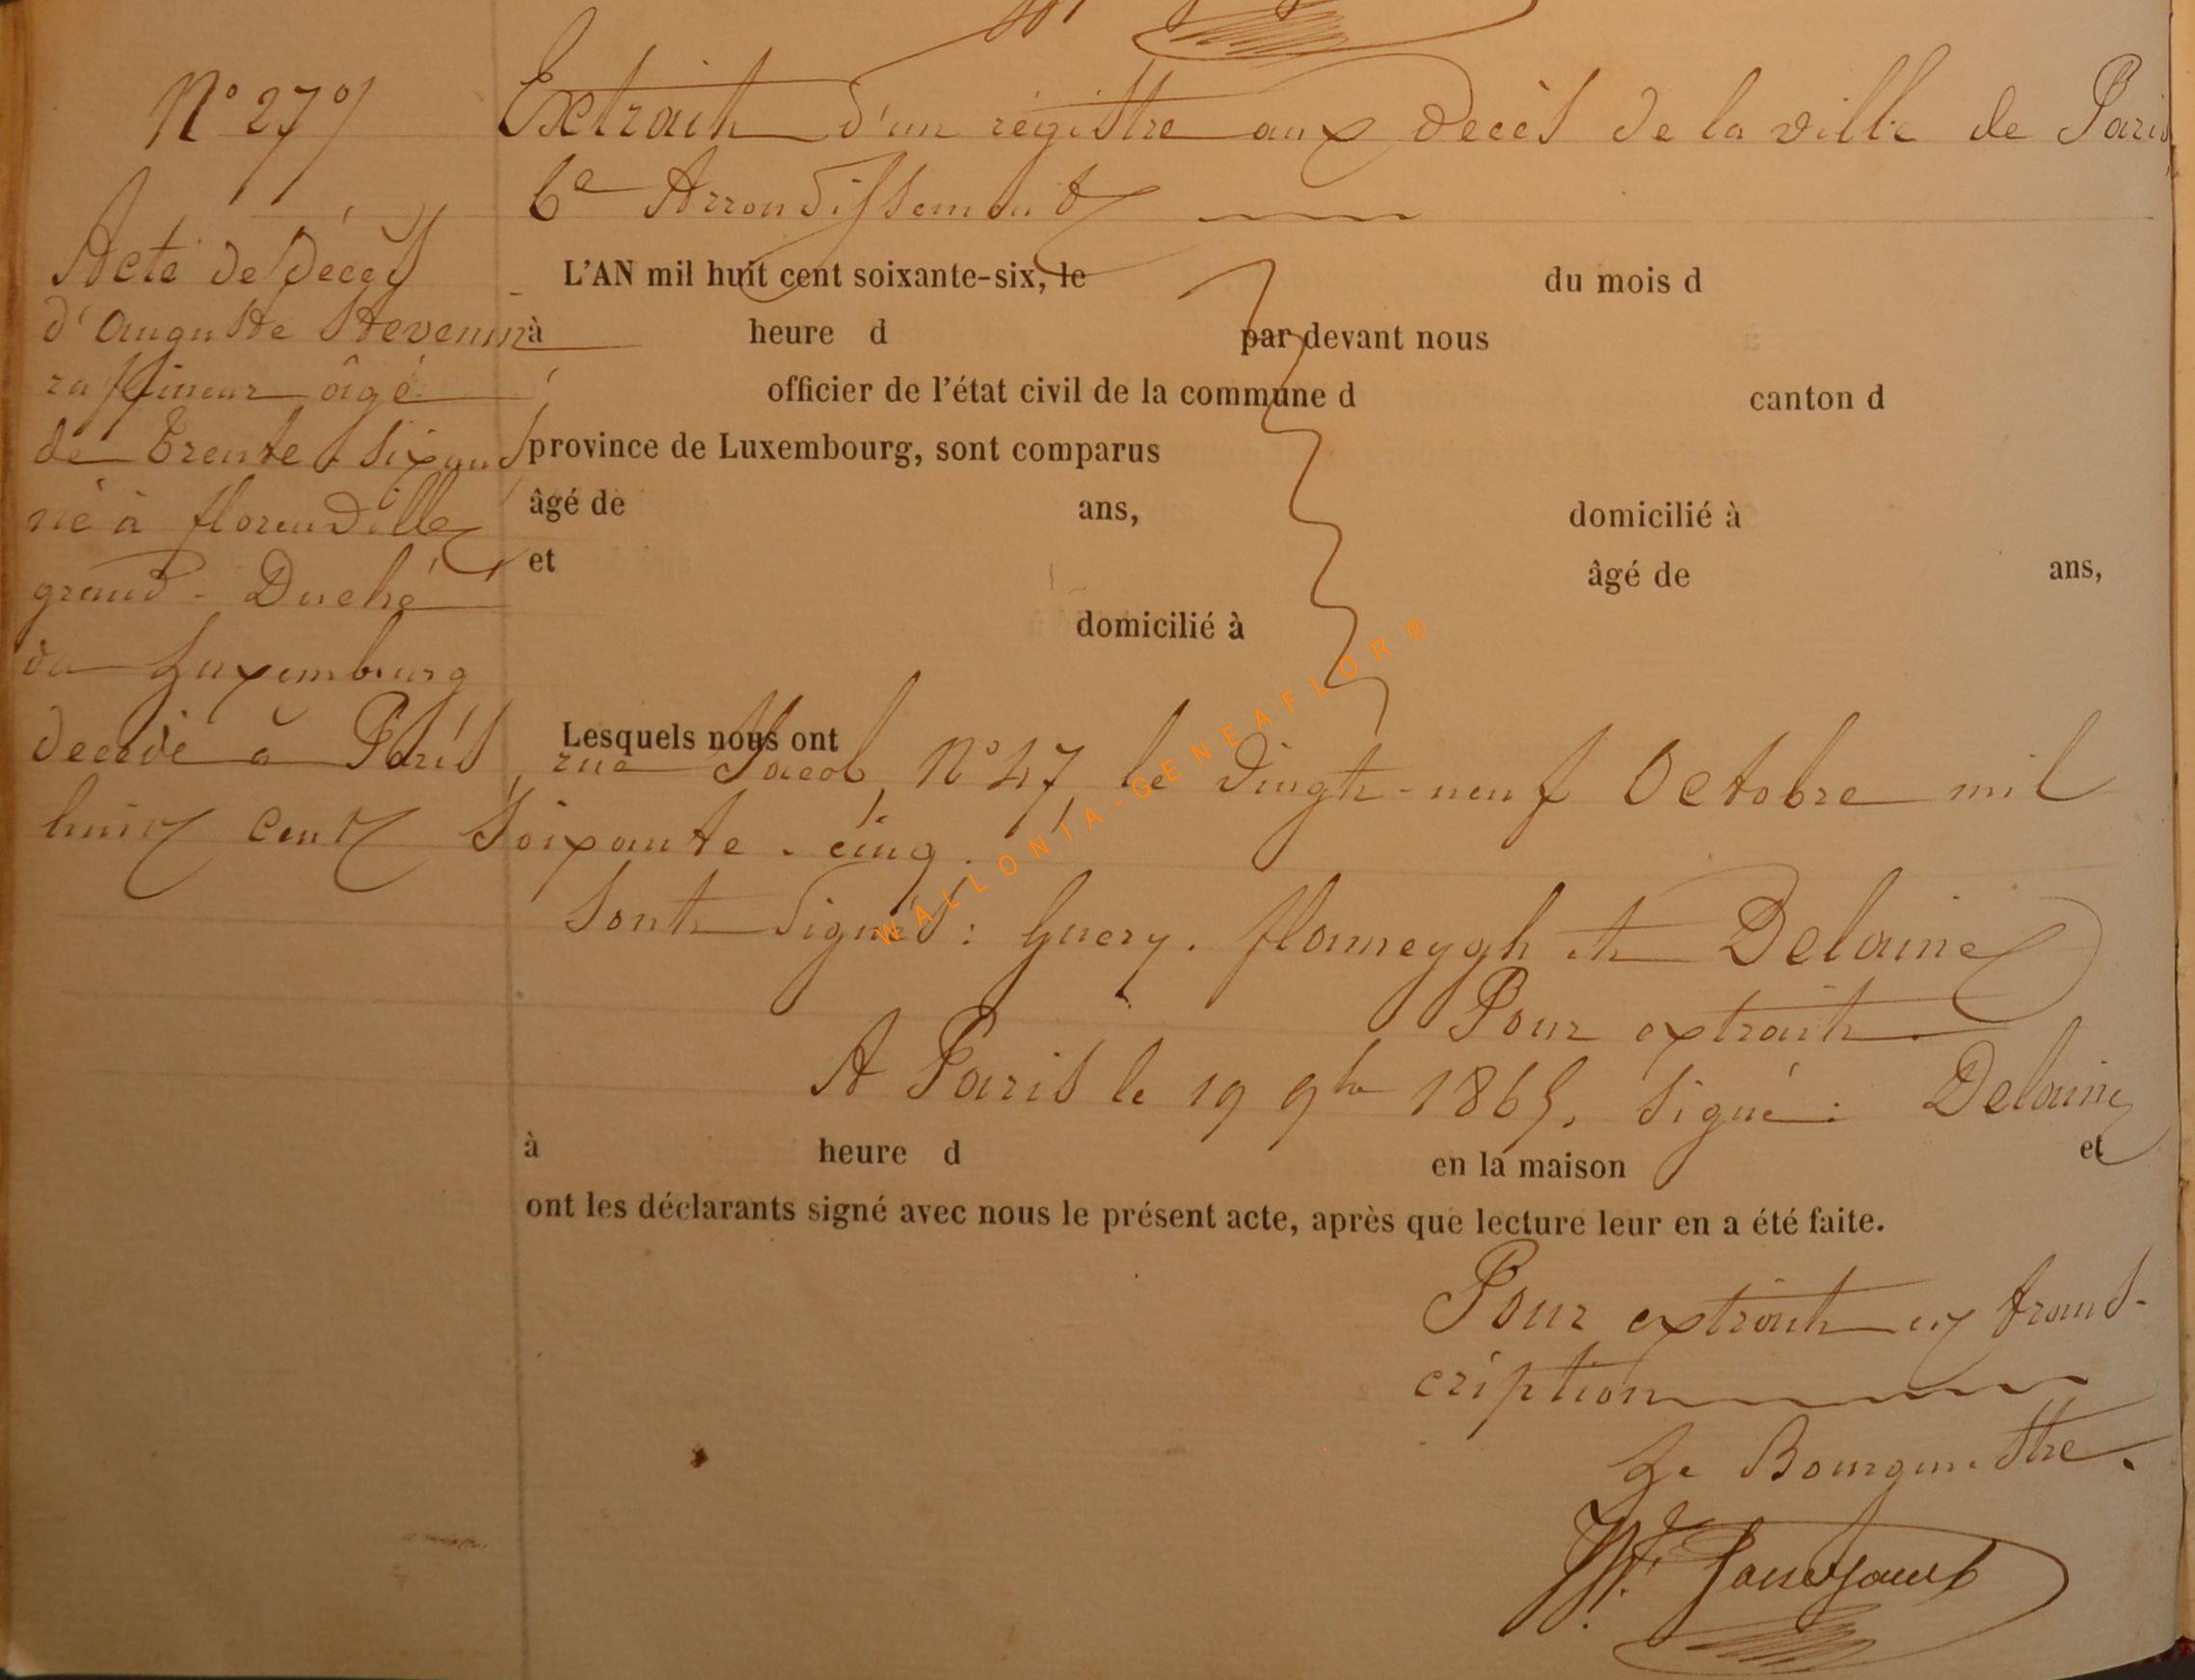 N° 27
Extrait d'un régistre aux décès de la ville de Paris
6e Arrondissement
Acte de Décès
d'Auguste Stevenin
raffineur âgé
de trente six ans
né à florenville
grand-Duché
du Luxembourg
L'AN mil huit cent soixante-six, le du mois d
à heure d par devant nous
officier de l'état civil de la commune d canton d
province de Luxembourg, sont comparus
âgé de ans, domicilié à
et âgé de ans,
domicilié à
Lesquels nous ont
décédé à Paris, rue Jacob, N° 47, le vingt-neuf Octobre mil
huit cent soixante-cinq.
Sont signés : Guery. flameygh et Delaine
Pour extrait
A Paris le 19 9bre 1865, signé : Delaine
à heure d en la maison et
ont les déclarants signé avec nous le présent acte, après que lecture leur en a été faite.
Pour extrait en trans-
cription
Le Bourgmestre.
WALLONIA-GENEAFLOR®